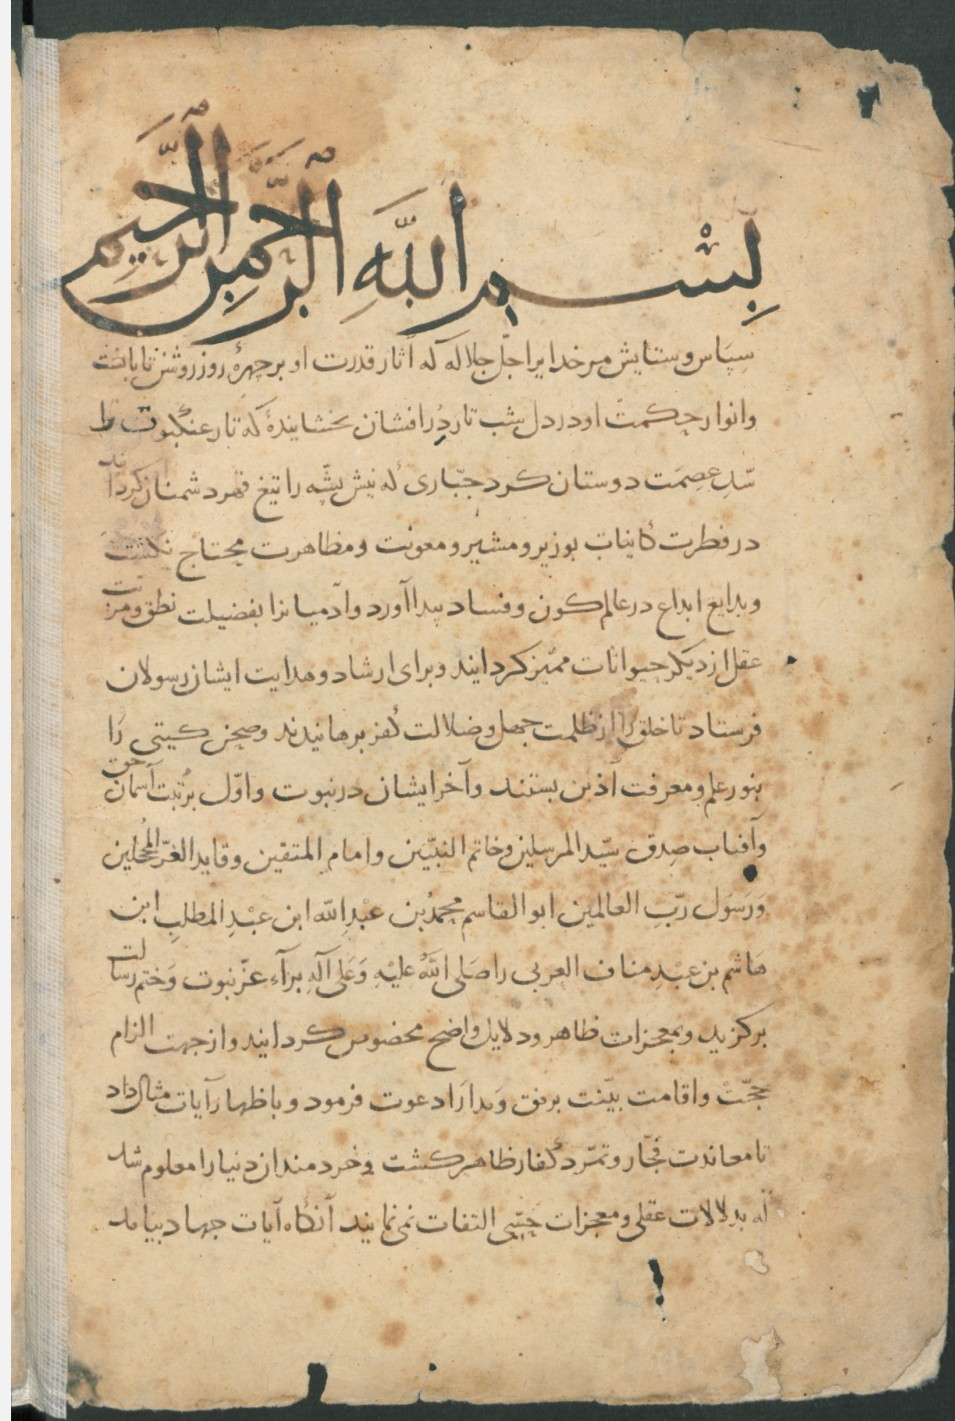 بِسْمِ اللَّهِ الرَّحْمٰنِ الرَّحِيمِ
سپاس و ستایش مر خدایرا جلّ جلاله که آثار قدرت او بر چهرهٔ روز روشن تابانست
و انوار حکمت او در دل شب تار دُرافشان بخشایندهٔ که تار عنکبوت را
سدِ عصمت دوستان کرد جبّاری که نیش پشه را تیغ قهر دشمنان کردانید
در فطرت کاینات بوزیر و مشیر و معونت و مظاهرت محتاج نکشت
و بدایع ابداع در عالم کون و فساد پیدا آورد و آدمیانرا بفضیلت نطق و مزیّت
عقل از دیکر حیوانات ممیّز کردانید و برای ارشاد و هدایت ایشان رسولان
فرستاد تا خلق را از ظلمت جهل و ضلالت کفر برهانیدند و صحن کیتی رَا
بنور علم و معرفت آذین بستند و آخر ایشان در نبوت و اوّل برُتبت آسمان حق
و آفتاب صدق سیّد المرسلین و خاتم النبیّین و امام المتقین و قاید الغرّ المُحجلین
وَ رَسُول ربّ العالمین ابو القاسم محمدُ بن عبْدِ اللّه ابن عبْدِ المطلبِ ابن
هَاشم بن عبْدِ مناف العربی را صَلی اللّهُ علیْهِ وَ عَلی آلهِ برآء عزّ نبوت وَ ختم رسالت
برکزید و بمعجزات ظاهر و دلایل واضح مخصوص کردانید و از جهت الزام
حجّت و اقامت بیّنت برفق وَ مدارَا دعوت فرمود و باظهار آیات مثال داد
تا معاندت فجّار و تمرّد کُفار ظاهر کشت و خردمندان دنیا را معلوم شد
که بدلالات عقلی و معجزات حسّی التفات نمی نمایند آنکاه آیات جهاد بیامد